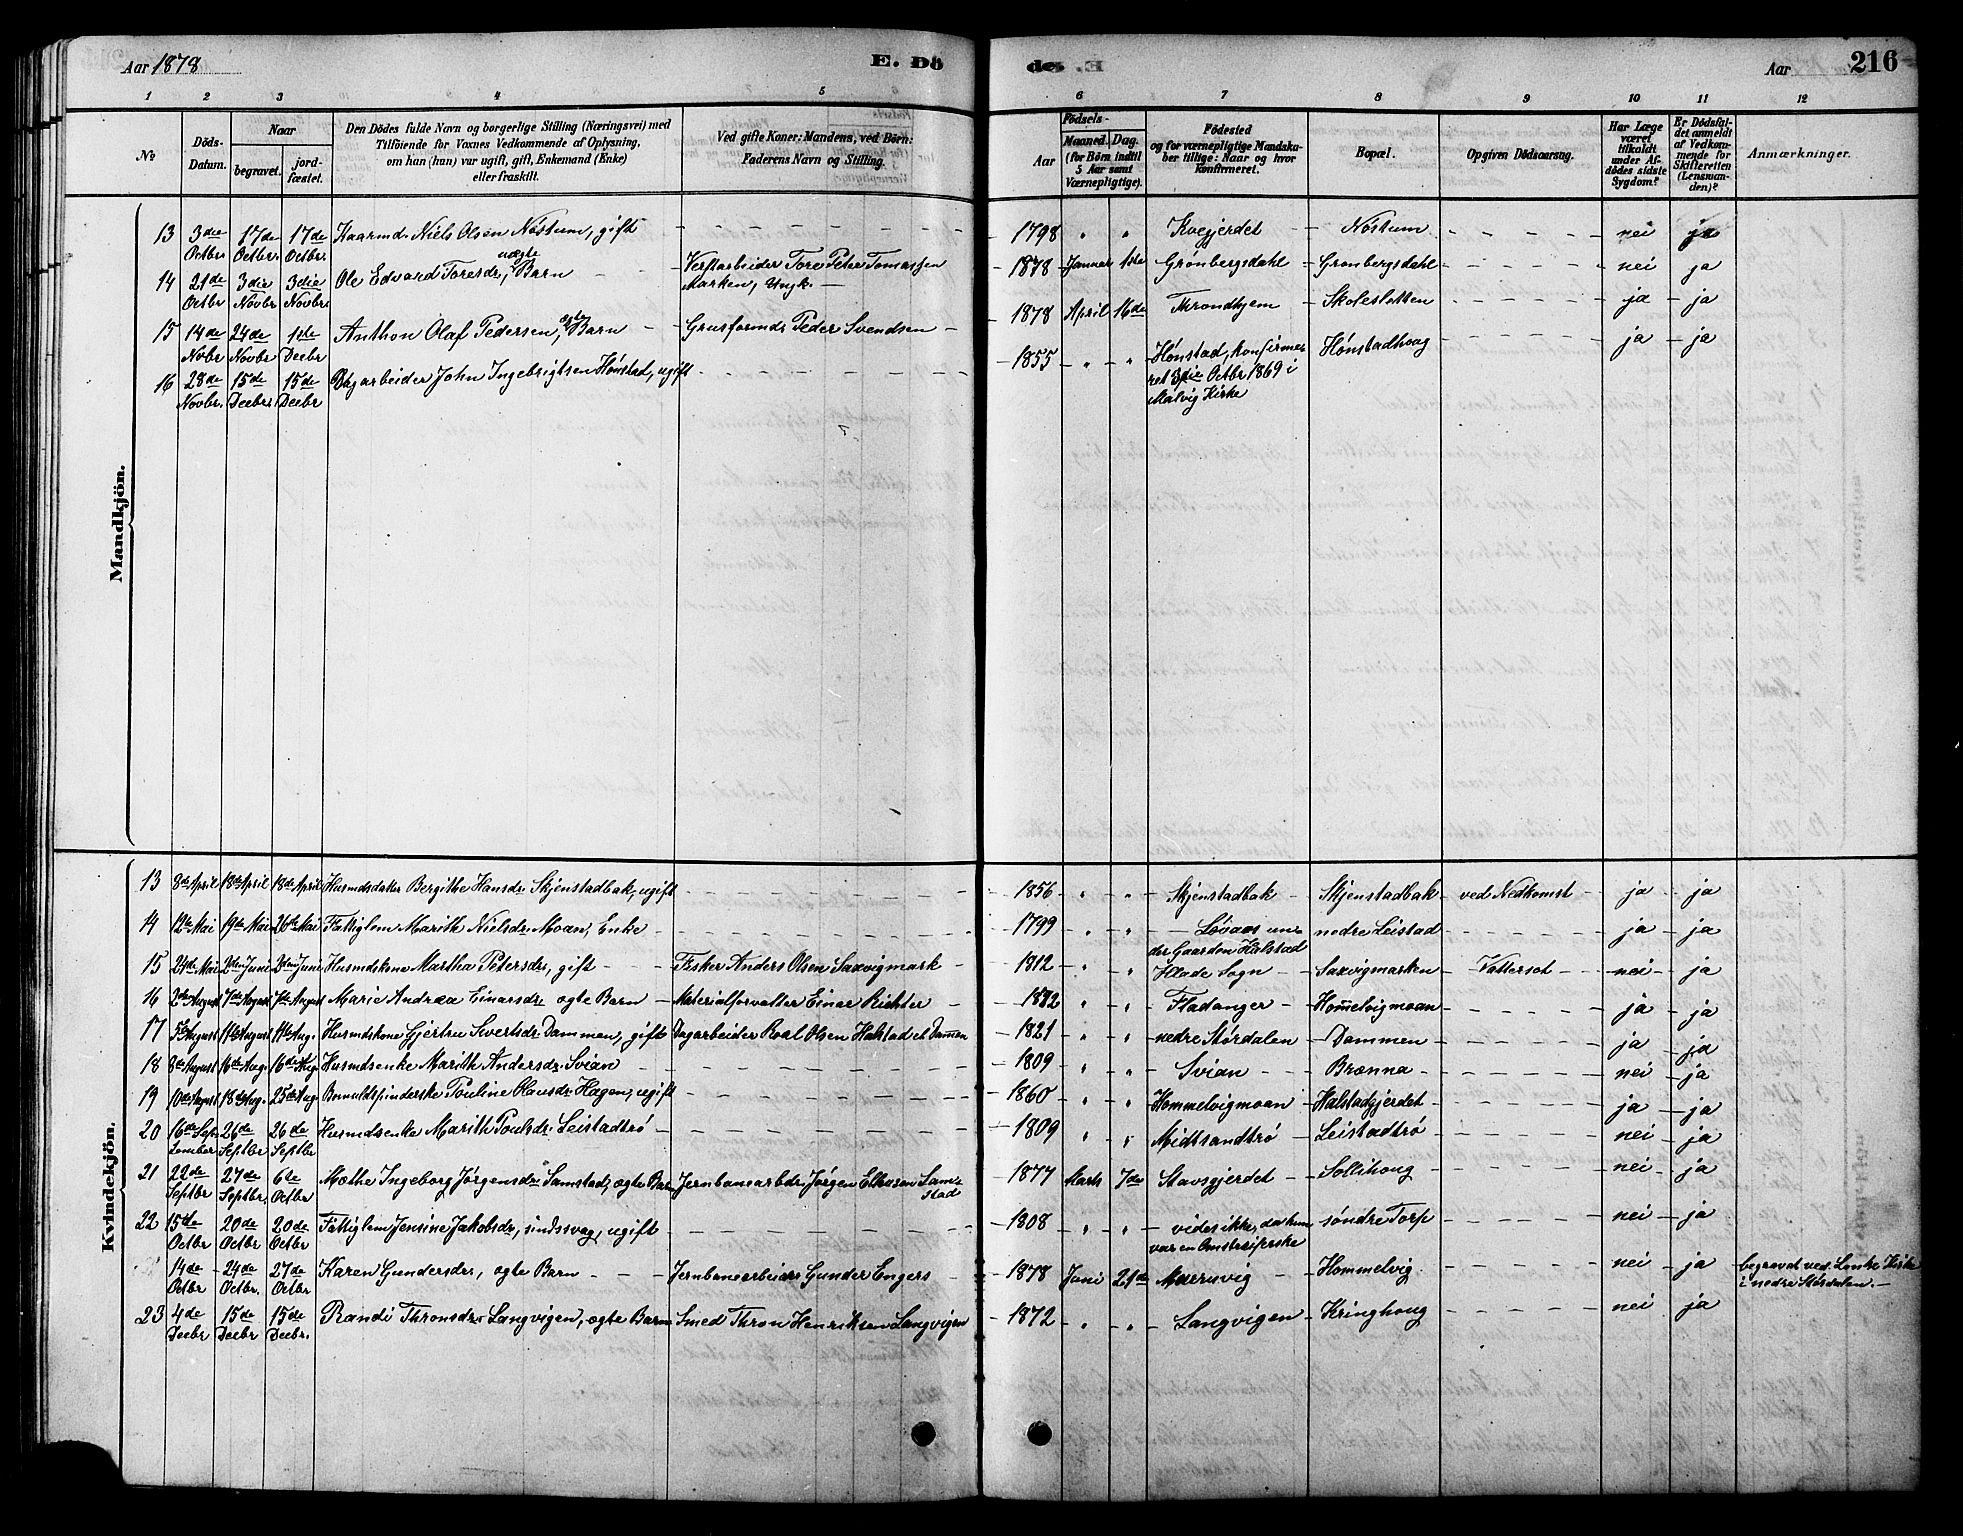 Aar 1878
E. Dö
des. E.
Aar
216
1 2 3 4 5 6 7 8 9 10 11 12
No
Döds-Datum.
Naar
begravet.
jordfæstet.
Den Dödes fulde Navn og borgerlige Stilling (Næringsvei) med
Tilföiende for Voxnes Vedkommende af Oplysning,
om han (hun) var ugift, gift, Enkemand (Enke)
eller fraskilt.
Ved gifte Koner: Mandens, ved Börn:
Faderens Navn og Stilling.
Födsels-
Aar
Maaned. Dag.
(for Börn indtil
5 Aar samt
Værnepligtige).
Födested
og for værnepligtige Mandska-
ber tillige: Naar og hvor
Konfirmeret.
Bopæl.
Opgiven Dödsaarsag.
Har Læge
været
tilkaldt
under Af-
dödes sidste
Sygdom?
Er Dödsfal-
det anmeldt
af Vedkom-
mende for
Skifteretten
(Lensman-
den)?
Anmærkninger.
Mandkjön.
13 3die Octbr. 17de Octbr. 17de Octbr. Kaarmd. Niels Olsen Nøstum, gift 1798 " " Kvegjerdet Nostum nei ja
14 21de Octbr 3die Novbr 3die Novbr. Ole Edvard Toresdr, uægte Barn Verftarbeider Tore Peter Tomassen Marken, Ungk. 1878 Januar 1ste Grønbergsdahl Gronbergsdahl nei ja
15 14de Novbr 24de Novbr 1ste Decbr Anthon Olaf Pedersen, ægte Barn Grusformd. Peder Svendsen 1878 April 16de Throndhjem Skolesletten ja ja
16 28de Novbr. 15de Decbr. 15de Decbr Dagarbeider John Ingebrigtsen Hønstad, ugift 1855 " " Hønstad, konfirmeret 3die Octbr 1869 i Malvig Kirke Hønstadhoug ja ja
Kvindekjön.
13 8de April 18de April 18de April Husmdsdatter Bergithe Hansdr. Skjenstadbak, ugift 1856 " " Skjenstadbak Skjenstadbak ved Nedkomst ja ja
14 12te Mai 19de Mai 26de Mai Fattiglem Marith Nielsdr. Moan, Enke 1799 " " Løvaas under Gaarden Halstad nedre Leistad ja ja
15 24de Mai 2den Juni 2den Juni Husmdskone Martha Petersdr, gift Fisker Anders Olsen Saxvigmark 1812 " " Hlade Sogn Saxvigmarken Vattersot nei ja
16 2de August 7de August 7de August Marie Andrea Einarsdr. ægte Barn Materialforvalter Einar Richter 1872 " " Fladanger Hommelvigmoan ja ja
17 5te August 14de August 14de Aug. Husmdskone Gjertru Svertsdr. Dammen, gift Dagarbeider Roal Olsen Halstad et Dammen 1821 " " nedre Størdalen Dammen ja ja
18 8de August 16de Aug. 16de Aug. Husmdsenke Marith Andersdr. Svian 1809 " " Svian Brænna nei ja
19 10de August 18de Aug. 25de Aug. Bomuldspinderske Pouline Olausdr. Hagen, ugift 1860 " " Hommelvigmoan Halstadgjerdet ja ja
20 16de September 26de Septbr 26de Septbr Husmdsenke Marith Poulsdr. Leistadtrø 1809 " " Midtsandtrø Leistadtrø nei ja
21 22de Septbr 27de Septbr. 6te Octbr Mæthe Ingeborg Jørgensdr. Samstad, ægte Barn Jernbanearbdr. Jørgen Elkasen Samstad 1877 Marts 7de Stavsgjerdet Sollihoug nei ja
22 15de Octbr 20de Octbr 20de Octbr Fattiglem Jensine Jakobsdr, sindssvag, ugift 1808 " " vides ikke, da hun var en Omstreiferske søndre Torp nei ja
14de Octbr 24de Octbr. 27de Octbr Karen Gundersdr, ægte Barn Jernbanearbeider Gunder Engers 1878 Juni 21de Muruvig Hommelvig nei ja begravet ved Lanke Kirke i nedre Størdalen.
23 4de Decbr 15de Decbr 15de Decbr. Randi Thronsdr. Langvigen, ægte Barn Smed Thron Henriksen Langvigen 1872 " " Langvigen Kringhoug nei ja